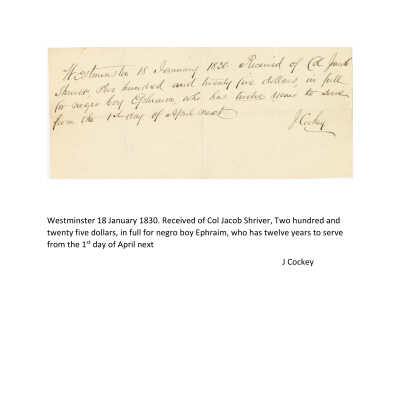 Westminster 18 January 1830. Received of Col Jacob
Shriver, Two hundred and twenty five dollars, in full
for negro boy Ephraim, who has twelve years to serve
from the 1st day of April next
J Cockey
Westminster 18 January 1830. Received of Col Jacob Shriver, Two hundred and
twenty five dollars, in full for negro boy Ephraim, who has twelve years to serve
from the 1st day of April next
J Cockey